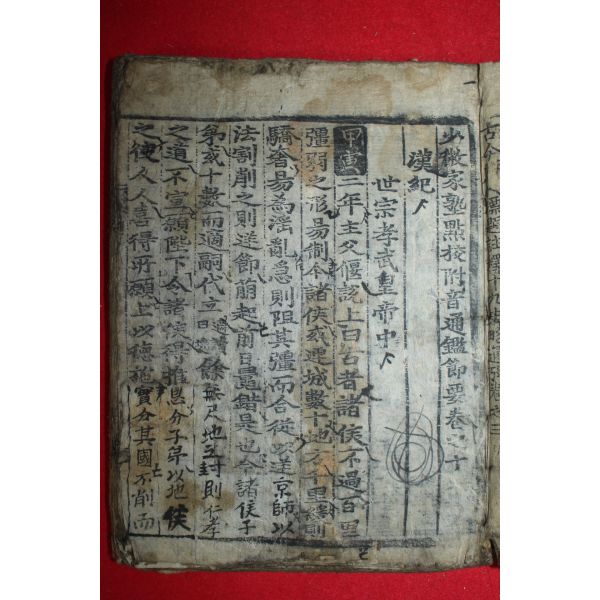 少微家塾點校附音通鑑節要卷之十
漢紀
世宗孝武皇帝中
甲寅 二年主父偃說上曰古者諸侯不過百里
彊弱之形易制今諸侯或連城數十地方千里緩則
驕奢易為滛亂急則阻其彊而合從以逆京師以
法割削之則逆節萌起前日晁錯是也今諸侯子
弟或十數而適嗣代立 餘無尺地之封則仁孝
之道不宣願陛下令諸侯得推恩分子弟以地侯
之使人人喜得所願上以德施實分其國不削而